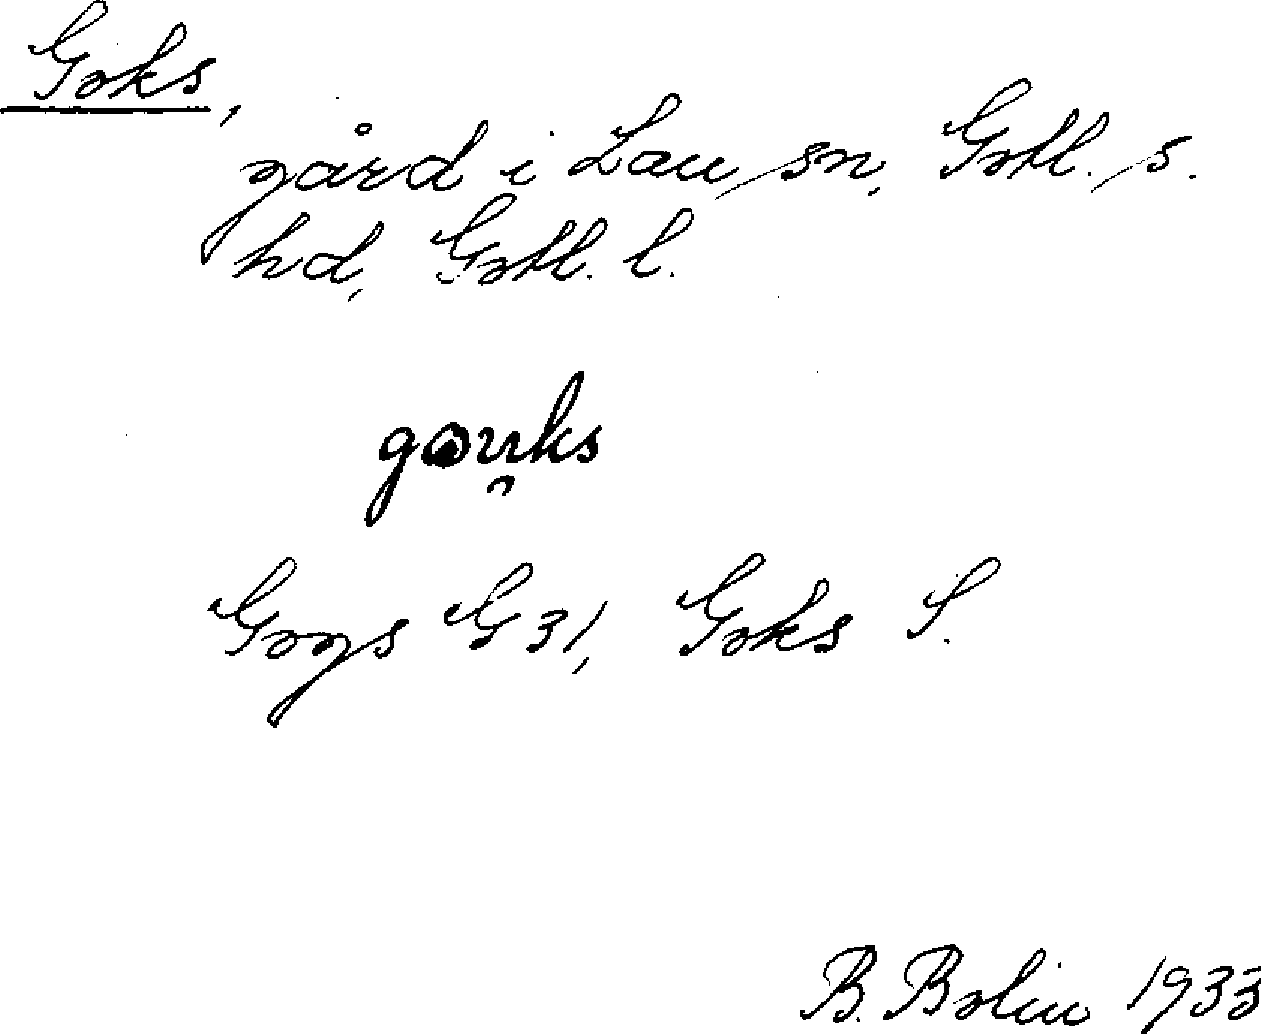 Goks,
gård i Lau sn, Gotl. s.
hd, Gotl. l.
gau̯ks
Gogs G 31, Goks S.
B. Bolin 1933